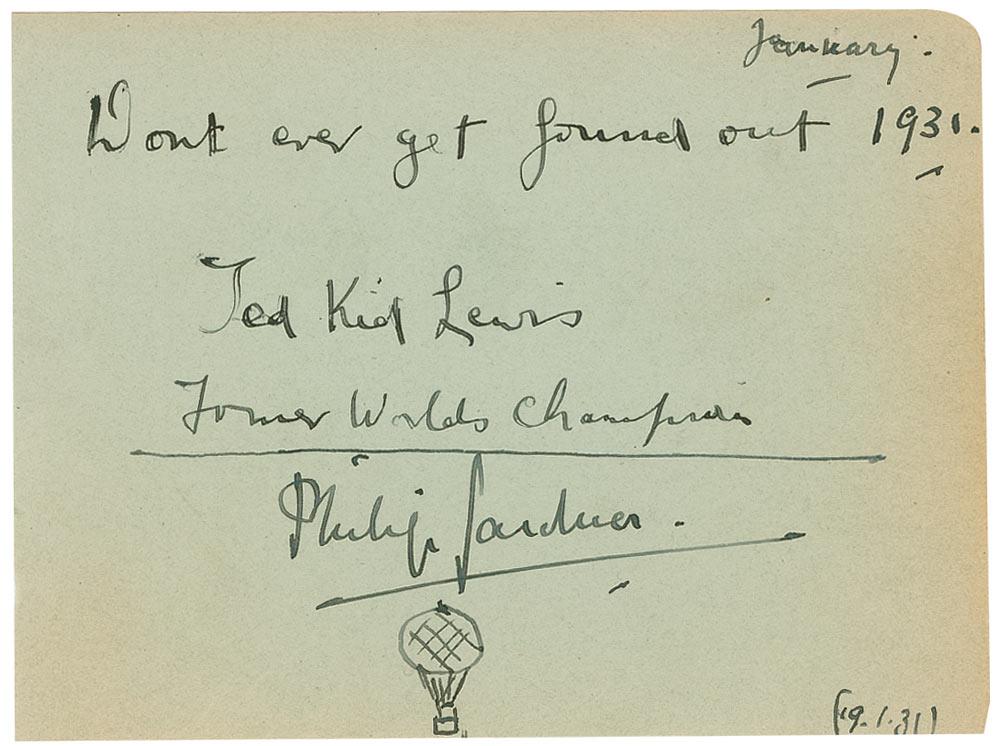 January.
Dont ever get found out 1931.
Ted Kid Lewis
Former Worlds Champion
Philip Gardner.
(19.1.31)